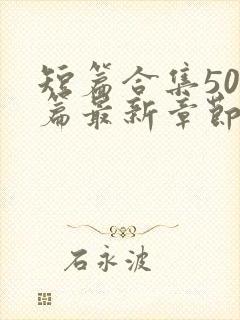 短篇合集50
篇最新章节
石永波